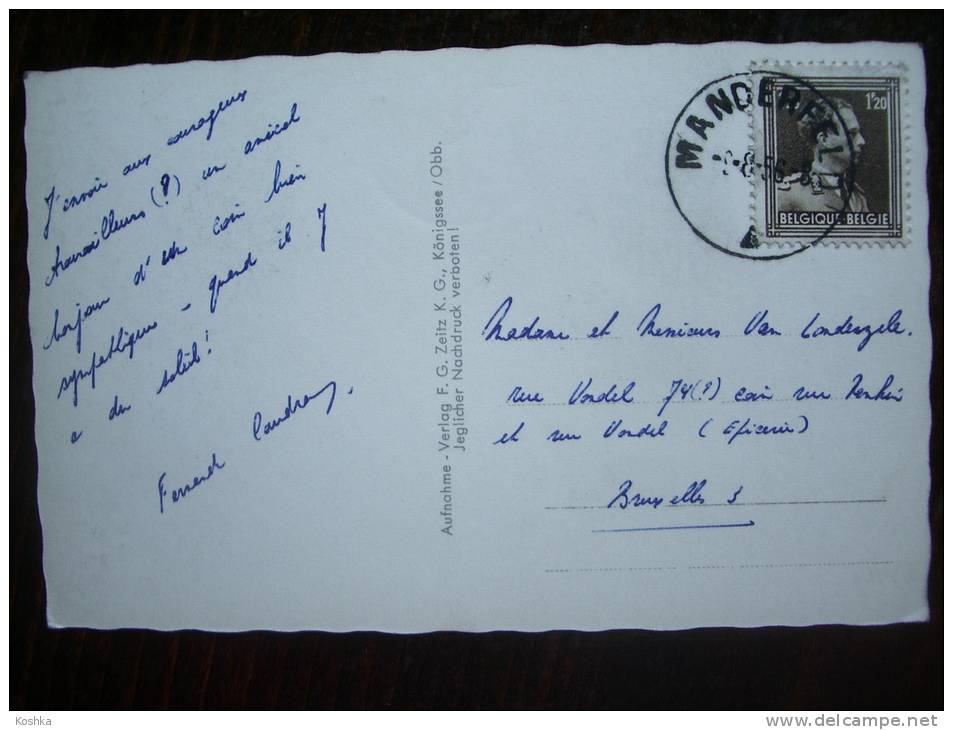 J'envoie aux courageux
travailleurs (?) un amical
bonjour d'un coin bien
sympathique - quand il y
a du soleil!
Fernande
Aufnahme - Verlag F. G. Zeitz K. G., Königssee / Obb.
Jeglicher Nachdruck verboten!
MANDERFELD
1F20
BELGIQUE-BELGIE
Madame et Messieurs Van Londerzele.
rue Vondel 74(?) coin rue
et rue Vondel (Epicerie)
Bruxelles 3
Koshka
www.delcampe.net